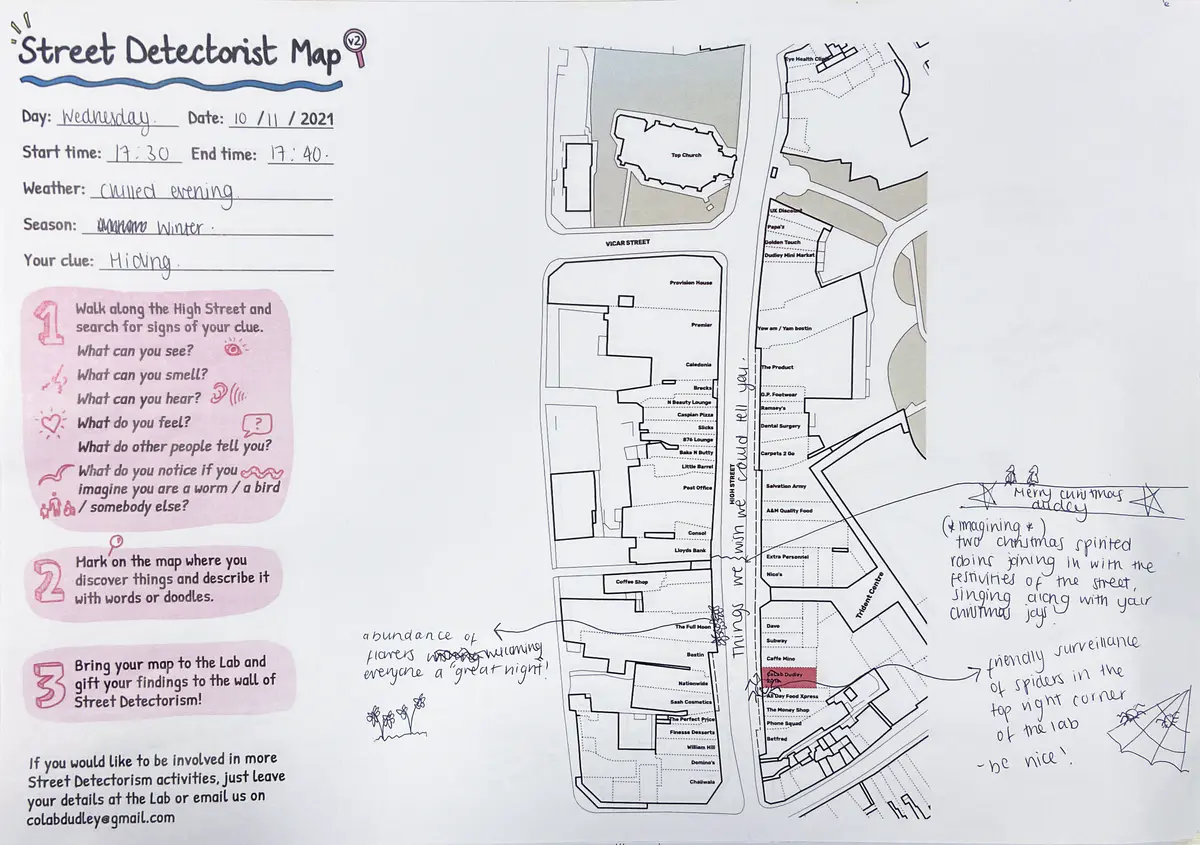 Street Detectorist Map v2
Day: Wednesday. Date: 10 / 11 / 2021
Start time: 17:30 End time: 17:40.
Weather: chilled evening
Season: Winter.
Your clue: Hiding.
1
Walk along the High Street and
search for signs of your clue.
What can you see?
What can you smell?
What can you hear?
What do you feel?
?
What do other people tell you?
What do you notice if you
imagine you are a worm / a bird
/ somebody else?
2
Mark on the map where you
discover things and describe it
with words or doodles.
3
Bring your map to the Lab and
gift your findings to the wall of
Street Detectorism!
If you would like to be involved in more
Street Detectorism activities, just leave
your details at the Lab or email us on
colabdudley@gmail.com
Eye Health Clinic
Top Church
VICAR STREET
UK Discount
Papa's
Golden Touch
Dudley Mini Market
Provision House
Premier
Yow am / Yam bostin
Caledonia
The Product
Bracks
G.P. Footwear
N Beauty Lounge
Ramsey's
Caspian Pizza
Slicks
Dental Surgery
876 Lounge
Bake N Butty
Carpets 2 Go
Little Barrel
Post Office
Salvation Army
HIGH STREET
A&M Quality Food
Consol
Lloyds Bank
Extra Personnel
Nico's
Coffee Shop
Trident Centre
The Full Moon
Dave
Subway
Bostin
Caffe Mino
Nationwide
CoLab Dudley
Sash Cosmetics
All Day Food Xpress
The Perfect Price
The Money Shop
Finesse Desserts
Phone Squad
William Hill
Betfred
Domino's
Chaiiwala
Things we wish we could tell you.
abundance of
flowers welcoming
everyone a "great night!
Merry christmas
dudley
(*imagining*)
two christmas spirited
robins joining in with the
festivities of the street,
singing along with your
christmas jays
friendly surveillance
of spiders in the
top right corner
of the lab
- be nice!